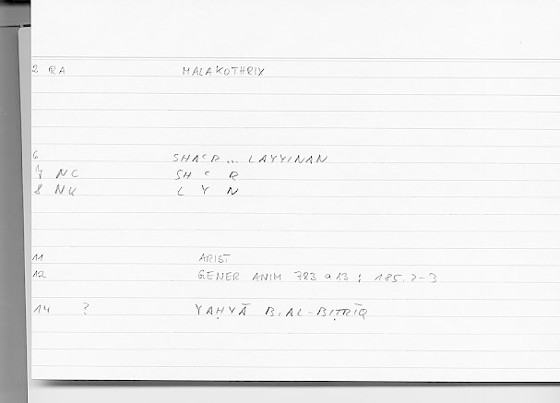 2 RA MALAKOTHRIX
6 SHAᶜR ... LAYYINAN
7 NC SH ᶜ R
8 NK L Y N
11 ARIST
12 GENER ANIM 783 a 13 ; 185.2-3
14 ? YAḤYĀ B. AL-BIṬRĪQ